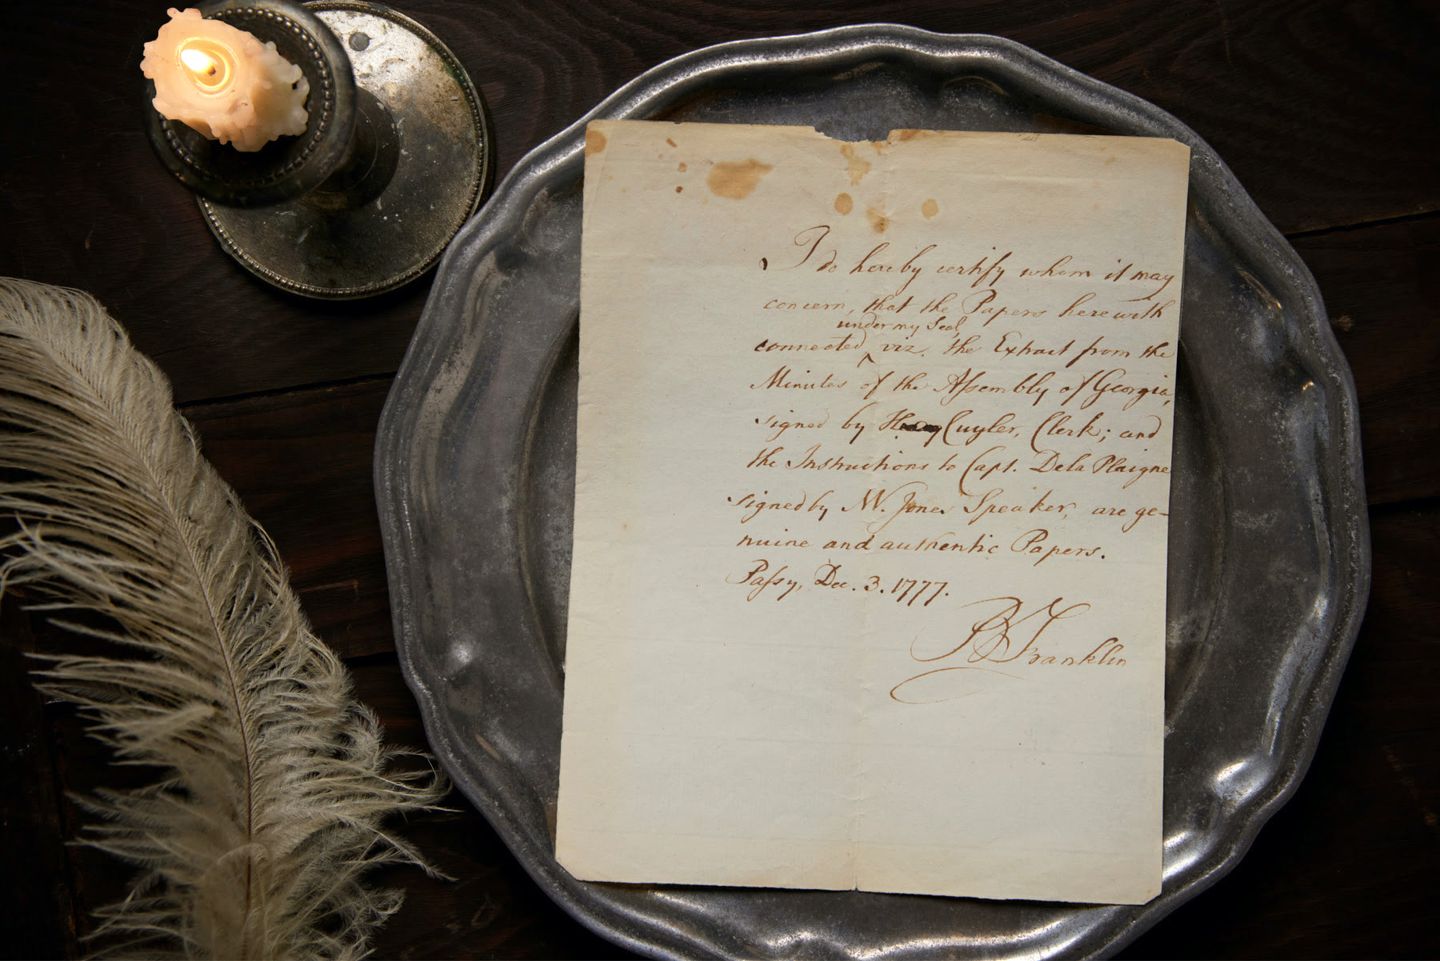 I do hereby certify whom it may
concern, that the Papers herewith
under my Seal,
connected viz. the Extract from the
Minutes of the Assembly of Georgia,
signed by Cuyler, Clerk; and
the Instructions to Capt. Dela Plaigne
signed by N.W. Jones Speaker, are ge-
nuine and authentic Papers.
Passy, Dec. 3. 1777.
B Franklin